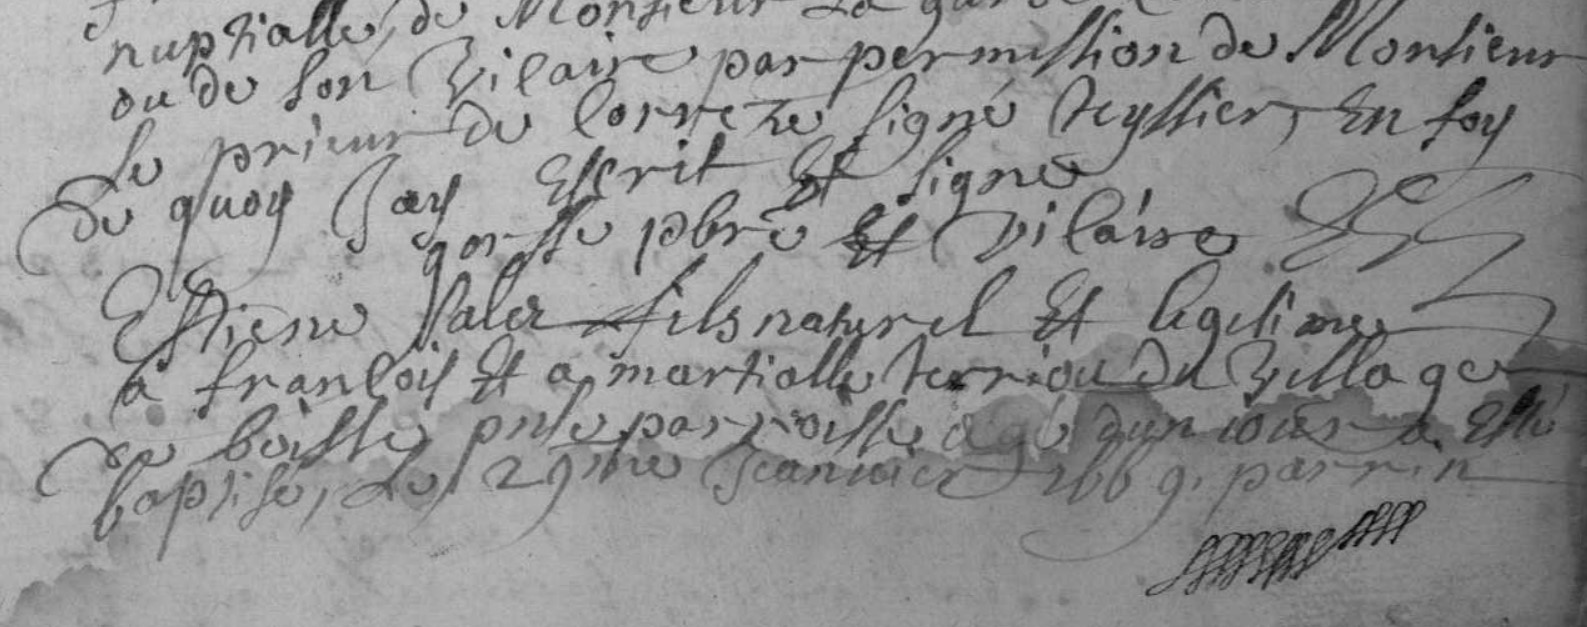 nuptialle, de Monsieur La
ou de son Vilaire par permission de Monsieur
le prieur de Correze signé teyssier, En foy
de quoy Jay Escrit Et signé
gorsse pbre Et Vilaire
Estiene Saler fils naturel Et legitime
a françois Et a martialle terriou du Village
de boisse pnte parroisse agé dun iour a Esté
baptisé, Le 29me Jeanvier 1669. parrin